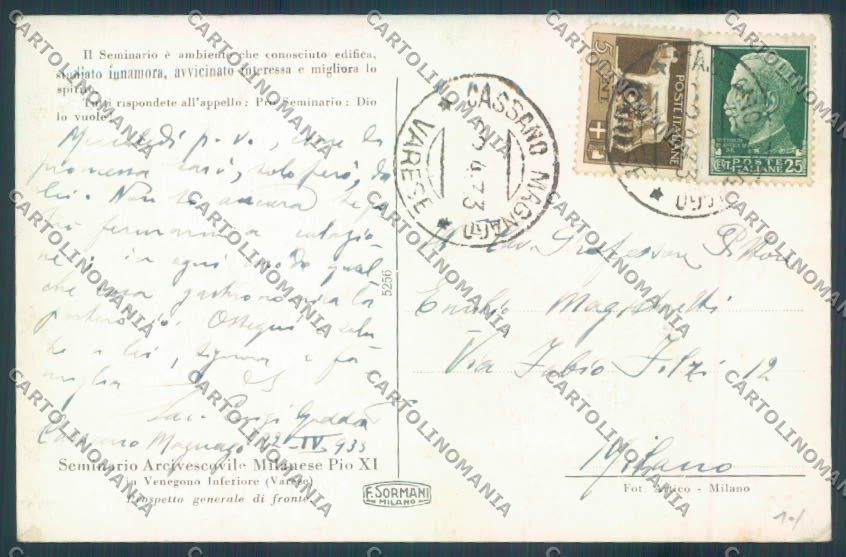 Il Seminario è ambiente che conosciuto edifica,
studiato innamora, avvicinato interessa e migliora lo
spirito.
Tutti rispondete all'appello: Pro Seminario: Dio
lo vuole!
Mercoledì p. v., come da
promessa sarò, solo però, da
lei. Non so ancora se po
trò fermarmi a colazio
ne; in ogni modo qual
che cosa
porterò io. Ossequi e salu
ti a lei, signora e fa
miglia
Sac. Luigi
Cassano Magnago 12-IV-933
Seminario Arcivescovile Milanese Pio XI
in Venegono Inferiore (Varese)
Prospetto generale di fronte
5256
F. SORMANI
MILANO
CASSANO MAGNAGO
VARESE
5 CENT.
POSTE ITALIANE
CENT. POSTE ITALIANE 25
Professore Pittore
Emilio
Via Fabio Filzi 12
Milano
Fot. Artico - Milano
CARTOLINOMANIA